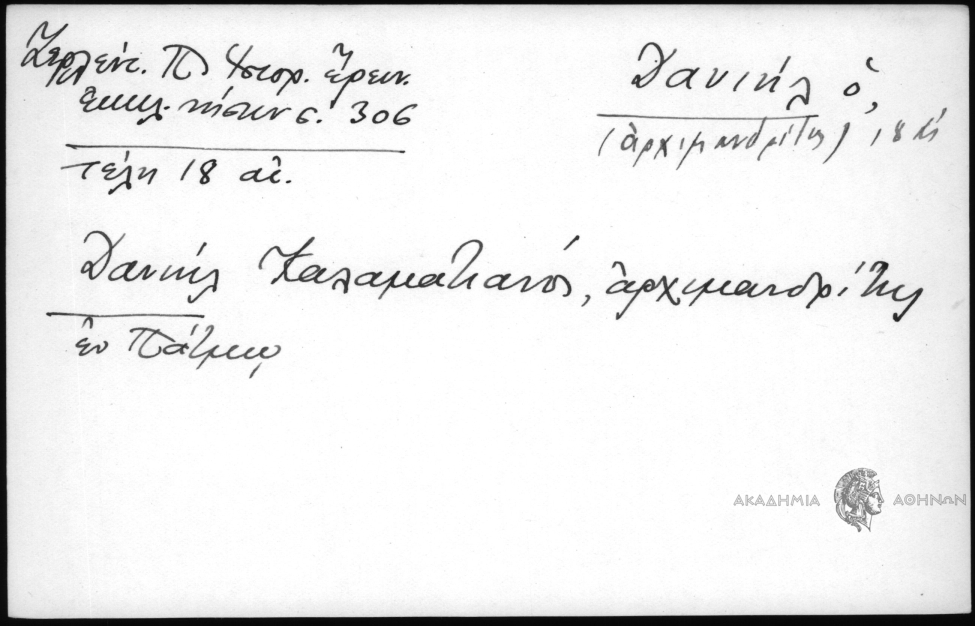 Ζερλέντ. Π. Ἱστορ. Ἔρευν.
Ἐκκλ. νήσων σ. 306
τέλη 18 αἰ.
Δανιήλ ὁ,
(ἀρχιμανδρίτης) 18 αἰ
Δανιήλ Καλαματιανός, ἀρχιμανδρίτης
ἐν Πάτμῳ
ΑΚΑΔΗΜΙΑ ΑΘΗΝΩΝ